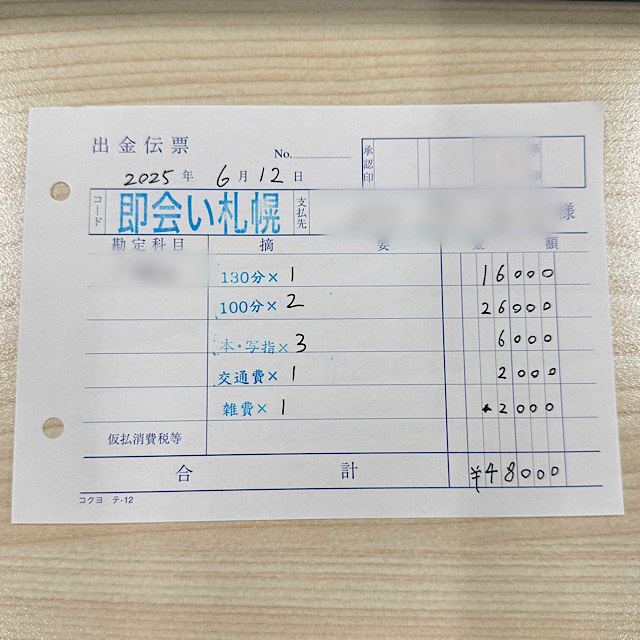 出金伝票
No.
承認印
印
2025年 6月12日
コード
即会い札幌
支払先
様
勘定科目 摘 要 金 額
130分×1 16000
100分×2 26000
本・写指×3 6000
交通費×1 2000
雑費×1 ▲2000
仮払消費税等
合 計 ¥48000
コクヨ テ-12